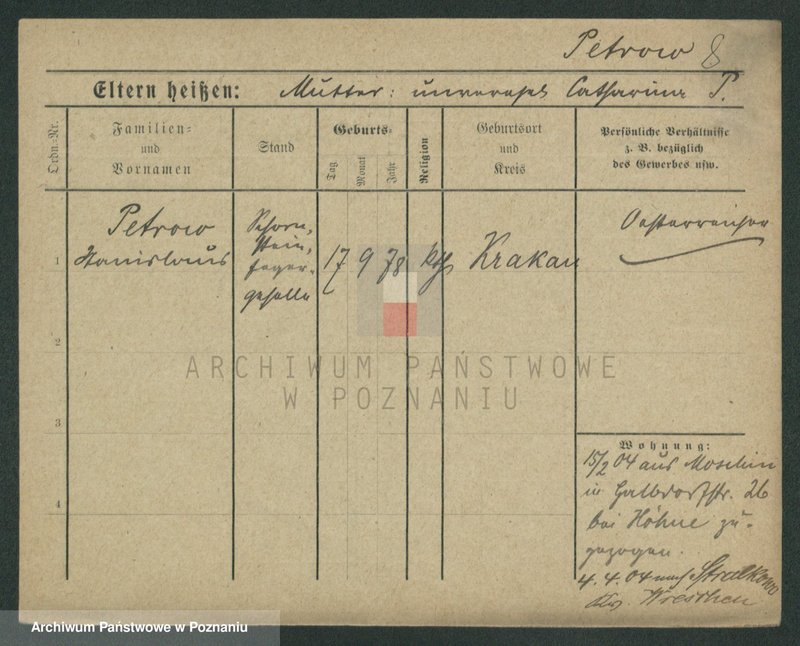 Petrow 8
Eltern heißen: Mutter: unverehel Catharina P.
Ordn.-Nr.
Familien-
und
Vornamen
Stand
Geburts-
Tag
Monat
Jahr
Religion
Geburtsort
und
Kreis
Persönliche Verhältnisse
z. B. bezüglich
des Gewerbes usw.
1
Petrow
Stanislaus
Schorn-
stein-
feger-
geselle
17
9
78
kth
Krakau
Oesterreicher
2
3
4
ARCHIWUM PAŃSTWOWE
W POZNANIU
Wohnung:
15/2 04 aus Moschin
in Halbdorfstr. 26
bei Höhne zu-
gezogen.
4.4.04 nach Stralkowo
Wreschen
Archiwum Państwowe w Poznaniu